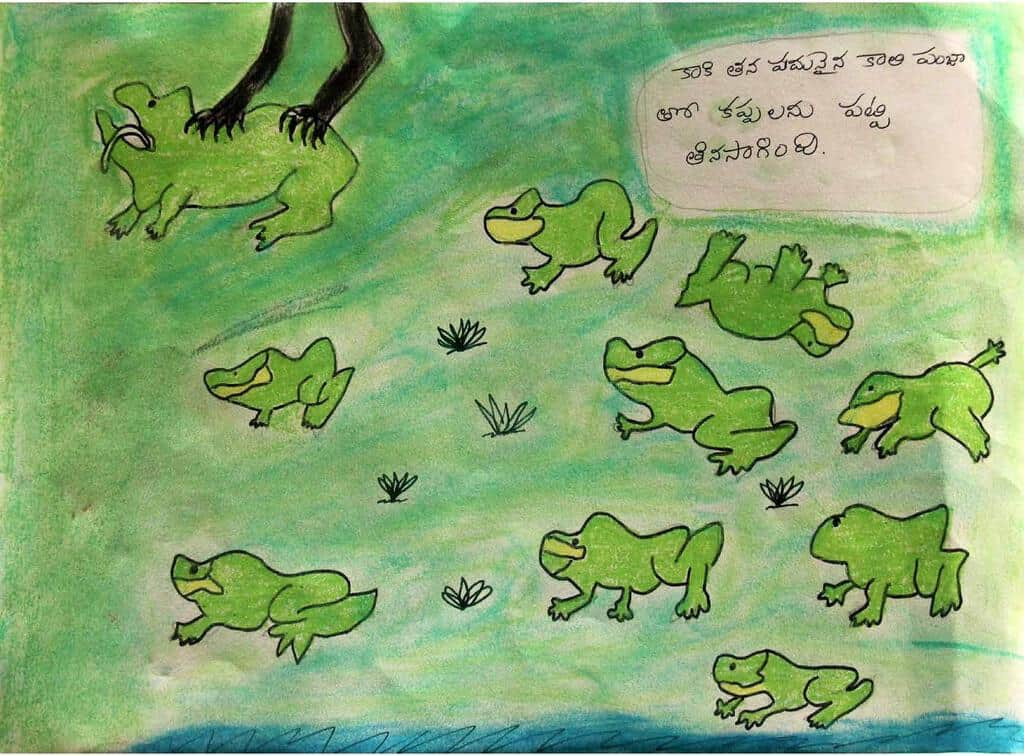 కాకి తన పదునైన కాలి పంజా
తో కప్పలను పట్టి
తినసాగింది.